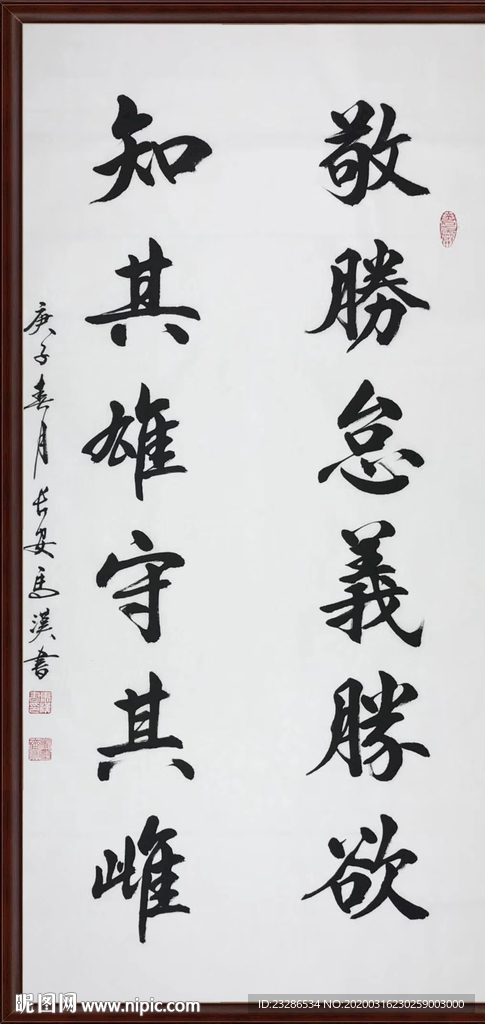 敬勝怠義勝欲
知其雄守其雌
庚子春月長安馬漢書
昵图网 www.nipic.com
ID:23286534 NO:20200316230259003000